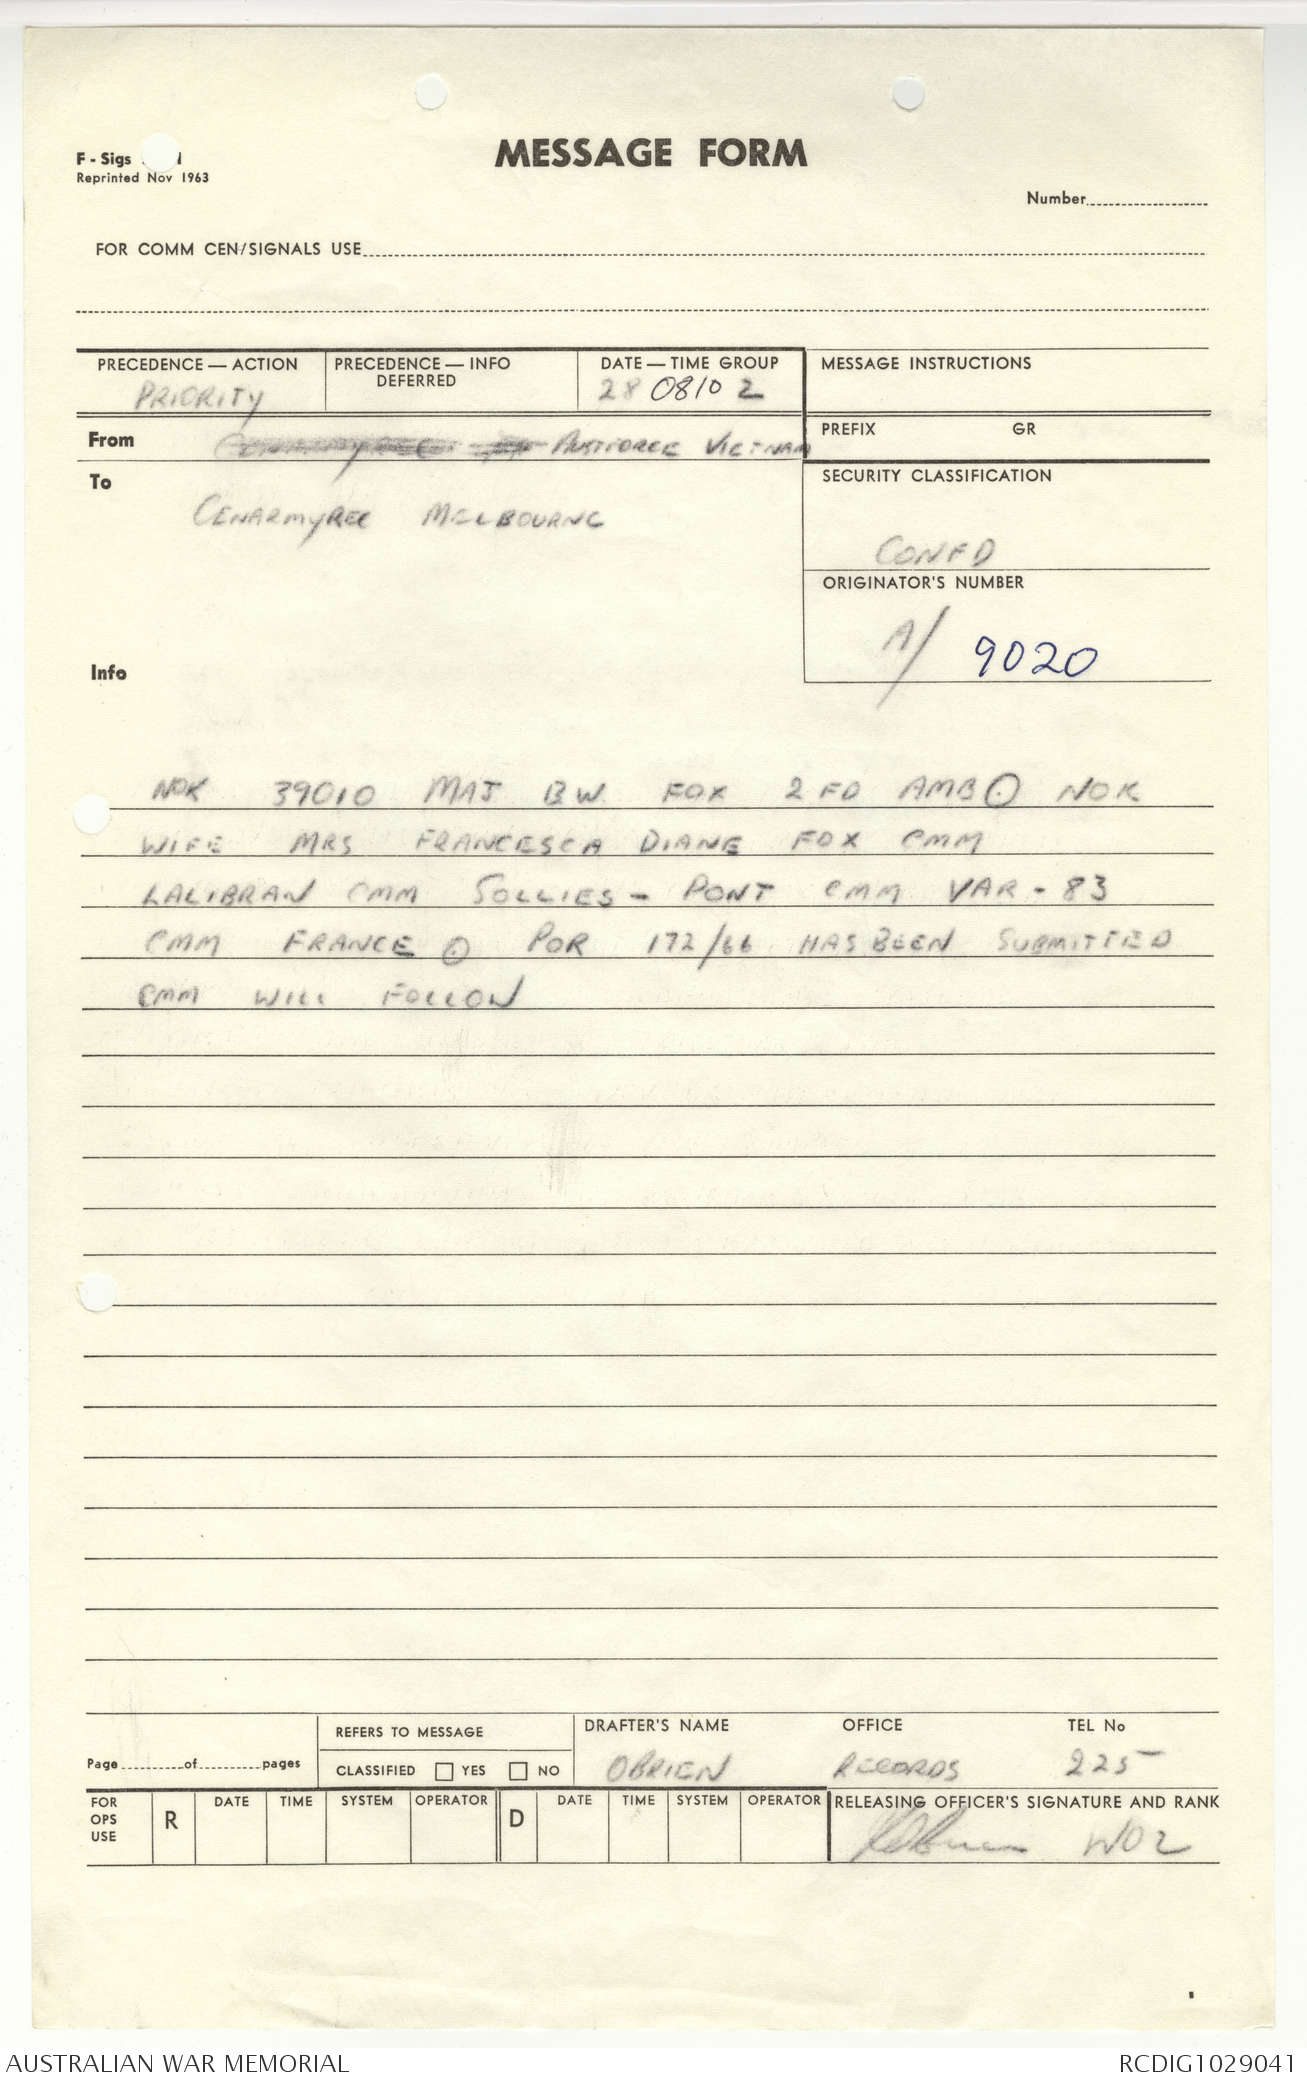 F - Sigs
Reprinted Nov 1963
MESSAGE FORM
Number
FOR COMM CEN/SIGNALS USE
PRECEDENCE — ACTION
PRIORITY
PRECEDENCE — INFO
DEFERRED
DATE — TIME GROUP
28 0810 Z
MESSAGE INSTRUCTIONS
From AUSTFORCE VIETNAM
PREFIX GR
To
CENARMYREC MELBOURNE
SECURITY CLASSIFICATION
CONFD
ORIGINATOR'S NUMBER
A/ 9020
Info
NOK 39010 MAJ BW FOX 2 FD AMB ⊙ NOK
WIFE MRS FRANCESCA DIANE FOX CMM
LALIBRAN CMM SOLLIES - PONT CMM VAR - 83
CMM FRANCE ⊙ POR 172/66 HAS BEEN SUBMITTED
CMM WILL FOLLOW
Page of pages
REFERS TO MESSAGE
CLASSIFIED YES NO
DRAFTER'S NAME
OBRIEN
OFFICE
RECORDS
TEL No
225
FOR
OPS
USE
R DATE TIME SYSTEM OPERATOR
D DATE TIME SYSTEM OPERATOR
RELEASING OFFICER'S SIGNATURE AND RANK
WO2
AUSTRALIAN WAR MEMORIAL
RCDIG1029041